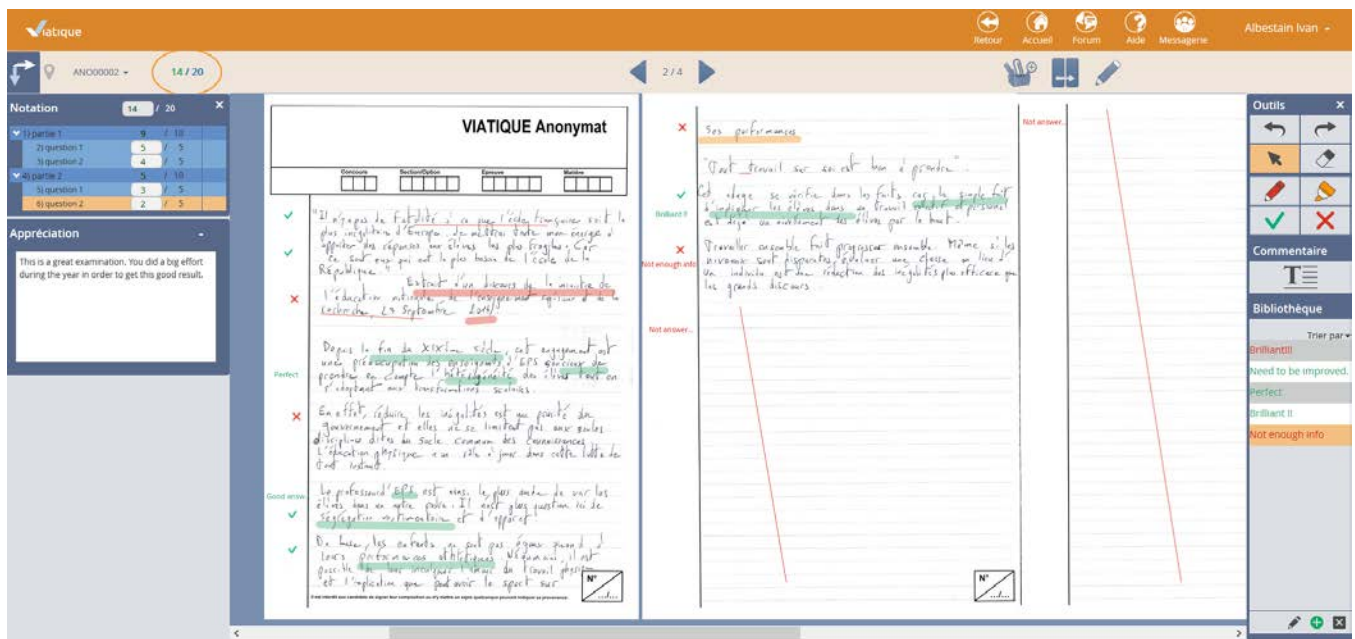 Viatique
Retour
Accueil
Forum
Aide
Messagerie
Albestain Ivan
ANO00002
14 / 20
2 / 4
Notation 14 / 20
1) partie 1 9 / 10
2) question 1 5 / 5
3) question 2 4 / 5
4) partie 2 5 / 10
5) question 1 3 / 5
6) question 2 2 / 5
Appréciation
This is a great examination. You did a big effort
during the year in order to get this good result.
VIATIQUE Anonymat
Concours Section/Option Epreuve Matière
"Il n'y a pas de fatalité à ce que l'école française soit la
plus inégalitaire d'Europe. Je mettrai toute mon énergie à
apporter des réponses aux élèves les plus fragiles. Car
ce sont eux qui ont le plus besoin de l'école de la
République."
Extrait d'un discours de la ministre de
l'éducation nationale de l'enseignement supérieur et de la
recherche, 23 Septembre 2014.
Depuis la fin du XIXème siècle, cet engagement est
une préoccupation des enseignants d'EPS
prendre en compte l'hétérogénéité des élèves tout en
s'adaptant aux transformations scolaires.
Perfect
En effet, réduire les inégalités est une priorité du
gouvernement et elles ne se limitent pas aux seules
disciplines dites du socle commun des connaissances.
L'éducation physique a un rôle à jouer dans cette lutte de
tout instant.
Good answ.
Le professeur d'EPS est le plus de voir les
élèves dans un autre . Il n'est plus question ici de
ségrégation vestimentaire et d'apparat.
De base, les enfants ne sont pas égaux quand à
leurs performances athlétiques. Néanmoins, il est
possible de leur inculquer du travail physique
et l'implication que peut avoir le sport sur
N° .../...
Il est interdit aux candidats de signer leur composition ou d'y mettre un signe quelconque pouvant indiquer sa provenance.
Ses performances
"Tout travail sur soi est bon à prendre".
Cet adage se vérifie dans les faits car le simple fait
d'impliquer les élèves dans un travail et personnel
est déjà un nivellement des élèves par le haut.
Brilliant !!
Travailler ensemble fait progresser ensemble. Même si les
niveaux sont disparates, une classe au lieu d'
un individu est une réduction des inégalités plus efficace que
les grands discours.
Not enough info
Not answer...
N° .../...
Not answer...
Outils
Commentaire
T
Bibliothèque
Trier par
Brilliant!!!
Need to be improved.
Perfect
Brilliant !!
Not enough info